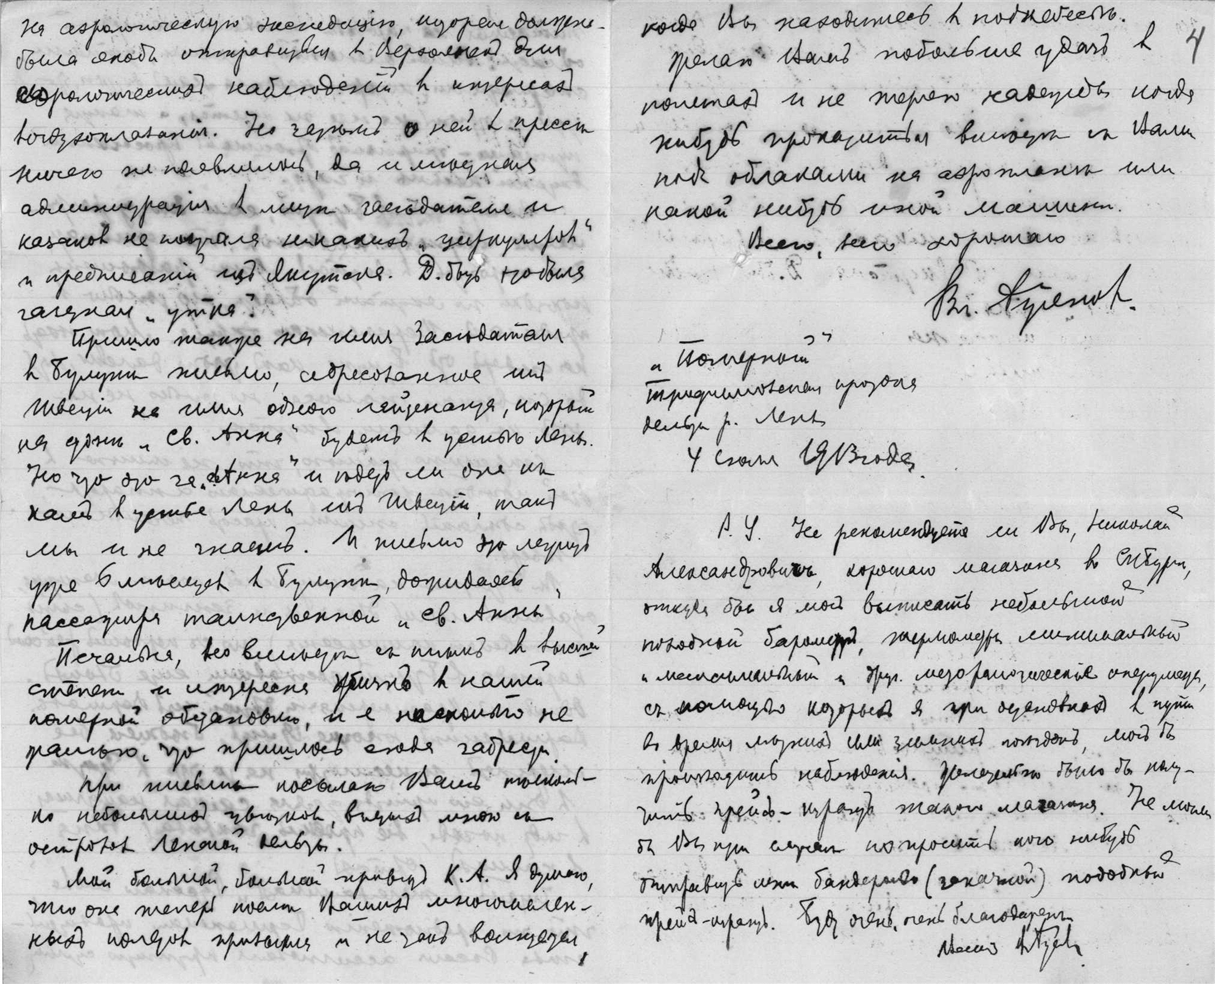 на аэрологическую экспедицію, которая должна
была якобы отправиться в Верхоянск для
аэрологическихъ наблюденій в интересах
воздухоплаванія. Но затемъ о ней в прессе
ничего не появлялось, да и местная
администрація в лице заседателя и
казаков не получала никакихъ „циркуляров"
и предписаній из Якутска. Д. быть это была
газетная „утка".
Пришло также на имя Заседателя
в Булуне письмо, адресованное изъ
Швеціи на имя одного лейтенанта, который
на судне „Св. Анна" будетъ в устье Лены.
Но что это за „Анна" и идет ли она къ
намъ в устье Лены изъ Швеціи, такъ
мы и не знаемъ. И письмо это лежитъ
уже 6 месяцев в Булуне, дожидаясь
пассажира таинственной „Св. Анны".
Печальна, но вместе съ темъ в высшей
степени и интересна жизнь в нашей
полярной обстановке, и я нисколько не
жалею, что пришлось сюда забрести.
При письме посылаю Вамъ
но небольших цветков, взятых мною съ
островов Ленской дельты.
Мой большой, большой привет К. А. Я думаю,
что она теперь после Вашихъ многочислен-
ных полетов привыкла и не так волнуется,
когда Вы находитесь в поднебесьи.
4
Желаю Вамъ побольше удачъ в
полетах и не теряю надежды когда
нибудь прокатиться вместе съ Вами
подъ облаками на аэроплане или
какой нибудь иной машине.
Всего, всего хорошаго
Вл.
„Полярный"
Трофимовская протока
дельты р. Лены
4 Іюля 1913 года.
P. S. Не рекомендуете ли Вы, Николай
Александрович, хорошаго магазина в СПбурге,
откуда бы я мог выписать небольшой
походной барометр, термометры минимальный
и максимальный и друг. метеорологические инструменты,
съ помощью которых я при остановках в пути
во время лодочных или зимних поездок, мог бы
производить наблюденія. Желательно было бы полу-
чить прейс-курантъ такого магазина. Не могли
бы Вы при случае попросить кого нибудь
отправить мне бандеролью (заказной) подобный
прейс-курантъ. Буду очень, очень благодарен.